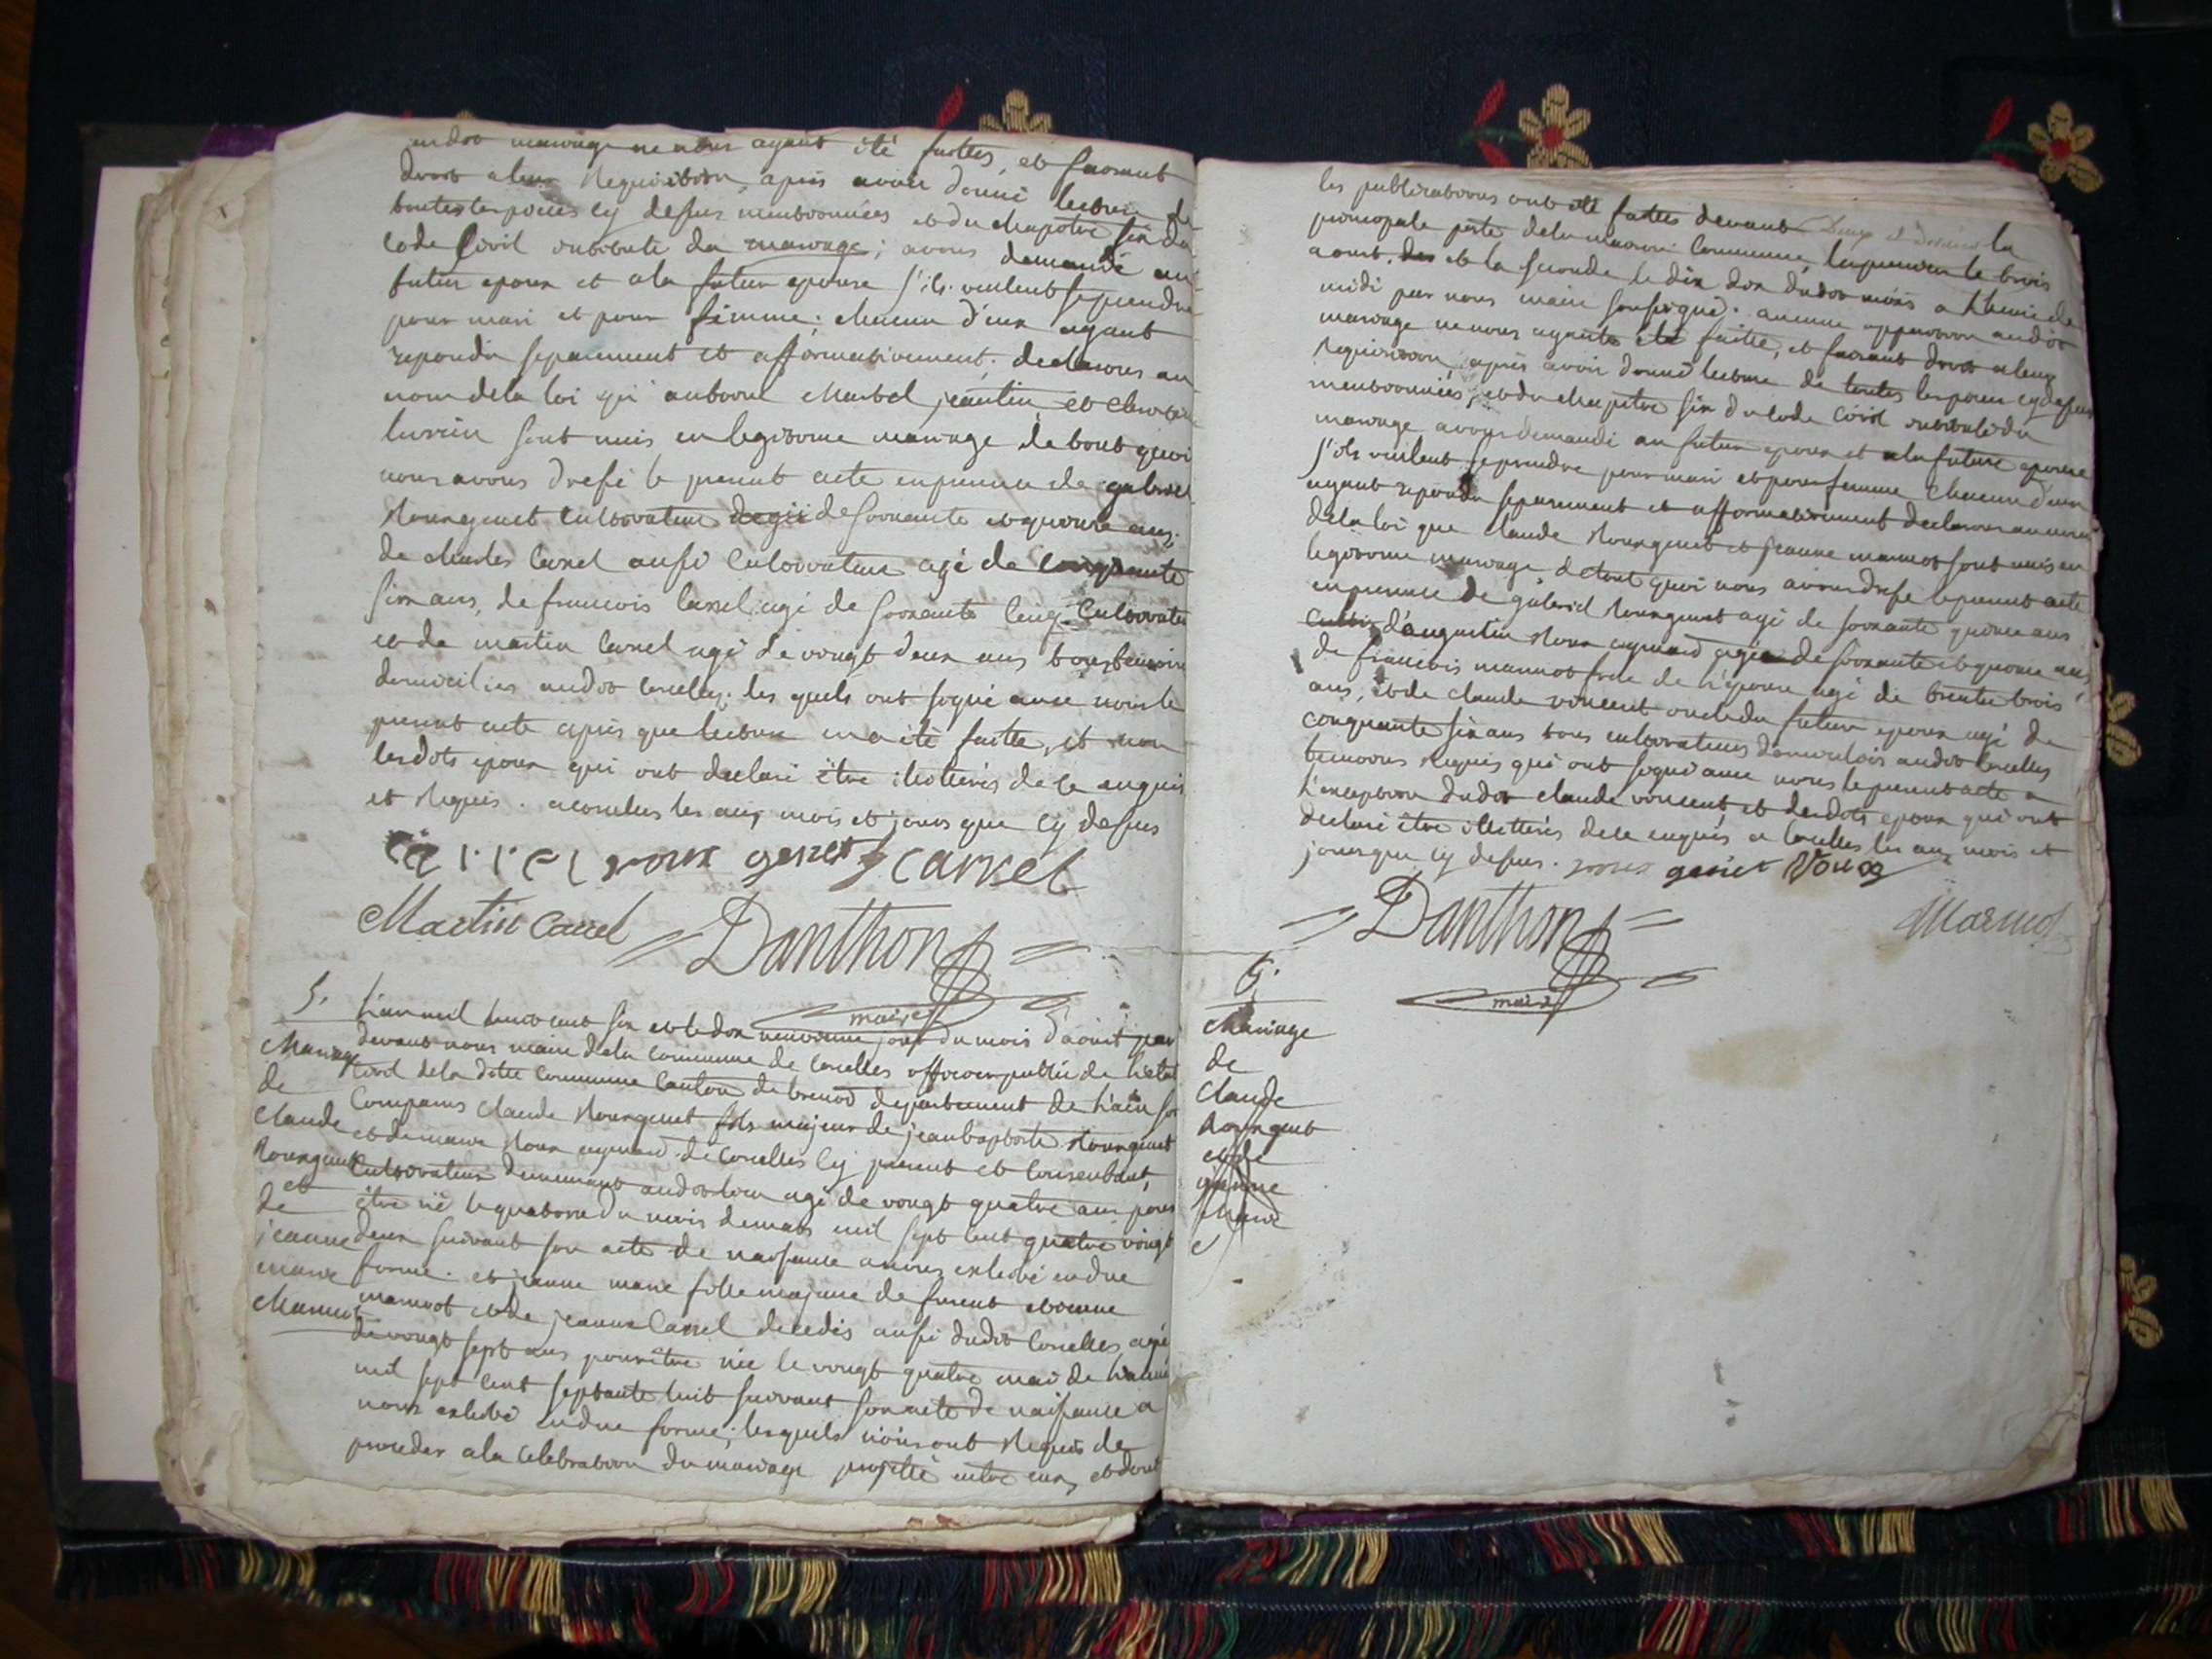 audot mariage ne nous ayant été faittes, et faisant
droit a leur Requisition, apres avoir donné lecture de
toutes les pieces cy dessus mentionnées et du chapitre six du
code Civil intitulé du mariage; avons demandé au
futur epoux et a la future epouse s'ils veulent se prendre
pour mari et pour femme; chacun d'eux ayant
repondu separement et affirmativement; declarons au
nom de la loi qu' antoine Martel jeantin et
sont unis en legitime mariage de tout quoi
nous avons dressé le present acte en presence de gabriel
Rouxgenet cultivateur de soixante et quinze ans,
de charles Carrel aussi cultivateur agé de cinquante
six ans, de francois Carrel agé de soixante cinq Cultivateur
et de martin Carrel agé de vingt deux ans tous temoins
domiciliés audot Corcelles; les quels ont signé avec nous le
present acte apres que lecture en a été faitte, et non
lesdits epoux qui ont declaré être illitterés de ce enquis
et Requis. a corcelles les an, mois et jours que cy dessus
carrel roux genet carrel
Martin Carrel Danthon
maire
5. L'an mil huit cent six et le dix neuvieme jour du mois d'aoust par
devant nous maire de la commune de Corcelles officier public de l'etat
Mariage Civil de la ditte Commune Canton de brenod departement de l'ain
de Comparus claude Rouxgenet fils majeur de jean baptiste Rouxgenet
Claude et de marie Roux aymard de Corcelles cy present et consentant,
Rouxgenet Cultivateur demeurant audot lieu agé de vingt quatre ans pour
et être né le quatorze du mois de mars mil sept cent quatre vingt
de deux suivant son acte de naissance a nous exhibé en due
jeanne forme. et jeanne marie fille majeure de furent etienne
marie marmot et de jeanne Carrel decedés aussi dudot Corcelles, agée
Marmot de vingt sept ans pour être née le vingt quatre mai de l'année
mil sept cent septante huit suivant son acte de naissance a
nous exhibé en due forme; lesquels nous ont Requis de
proceder a la celebration du mariage projetté entre eux, et dont
les publications ont été faittes devant la
principale porte de la maison Commune, la premiere le trois
aoust. et la seconde le dix dudot mois a l'heure de
midi par nous maire soussigné. aucune opposition audot
mariage ne nous ayante été faitte, et faisant droit a leur
Requisition, apres avoir donné lecture de toutes les pieces cy dessus
mentionnées, et du chapitre six du code Civil intitulé du
mariage avons demandé au futur epoux et a la future epouse
s'ils veulent se prendre pour mari et pour femme chacun d'eux
ayant repondu separement et affirmativement declarons au nom
de la loi que claude Rouxgenet et jeanne marmot sont unis en
legitime mariage, de tout quoi nous avons dressé le present acte
en presence de gabriel Rouxgenet agé de soixante quinze ans
d'augustin Roux aymard agé de soixante et quinze ans,
de francois marmot frere de l'epouse agé de trente trois
ans, et de claude vincent oncle du futur epoux agé de
cinquante six ans tous cultivateurs domiciliés audot Corcelles
temoins Requis qui ont signé avec nous le present acte a
l'exception dudot claude vincent, et desdits epoux qui ont
declaré être illitterés de ce enquis a Corcelles les an, mois et
jours que cy dessus. roux genet Roux
Danthon Marmot
maire
6.
Mariage
de
Claude
Rouxgenet
et de
jeanne
Marie